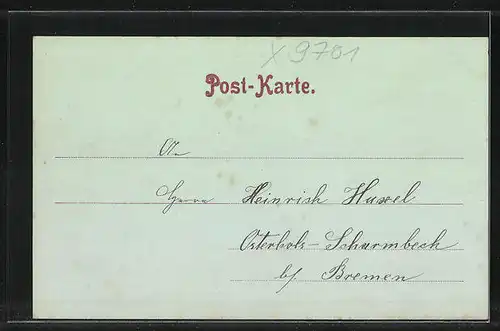 X 9701
Post-Karte.
An
Herrn Heinrich
Osterholz-Scharmbeck
b/ Bremen